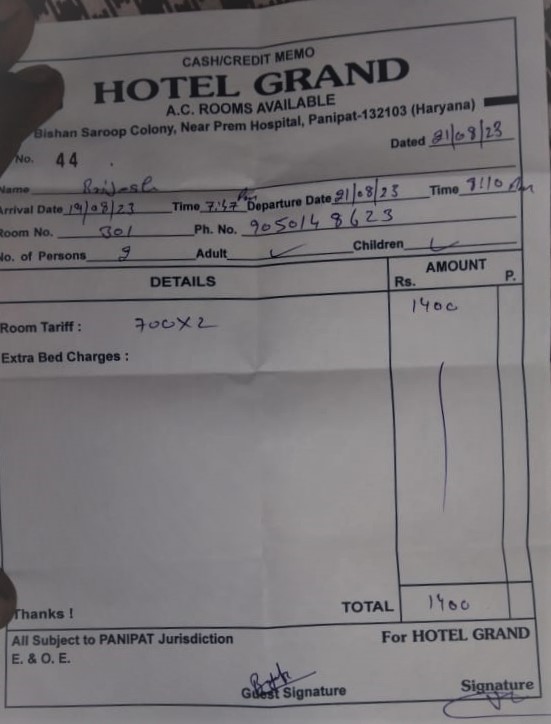 CASH/CREDIT MEMO
HOTEL GRAND
A.C. ROOMS AVAILABLE
Bishan Saroop Colony, Near Prem Hospital, Panipat-132103 (Haryana)
No. 44 Dated 21/08/23
Name
Arrival Date 19/08/23 Time 7:47 Pm Departure Date 21/08/23 Time
Room No. 301 Ph. No. 9050148623
No. of Persons Adult ✓ Children
DETAILS AMOUNT
Rs. P.
Room Tariff : 700X2 1400
Extra Bed Charges :
Thanks ! TOTAL 1400
All Subject to PANIPAT Jurisdiction For HOTEL GRAND
E. & O. E.
Guest Signature Signature